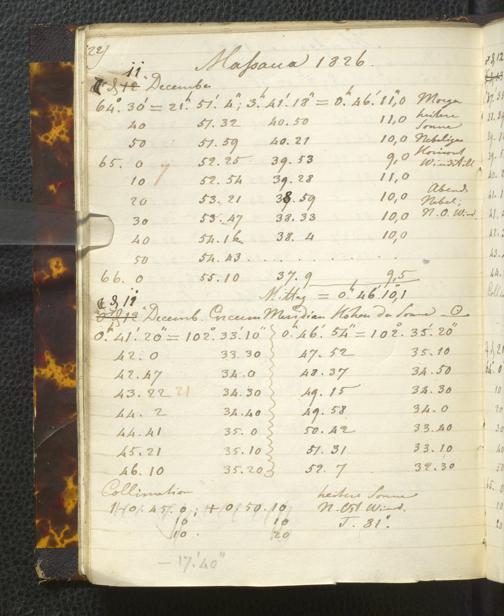 22)
Massaua 1826.
11
December
64°. 30' = 21h. 51'. 4"; 3h. 41'. 18" = 0h. 46'. 11,0 Morgen
40 51. 32 40. 50 11,0 heitere Sonne
50 51. 59 40. 21 10,0 Nebeliger Horizont
65. 0 52. 25 39. 53 9,0 Windstill
10 52. 54 39. 28 11,0
20 53. 21 38. 59 10,0 Abend Nebel;
30 53. 47 38. 33 10,0 N. O. Wind
40 54. 16 38. 4 10,0
50 54. 43 . . . . .
66. 0 55. 10 37. 9 9,5
Mittag = 0h. 46'. 10,1
11
Decemb. Circum Meridian Höhen der Sonne ⊙
0h. 41'. 20" = 102°. 33'. 10" 0h. 46'. 54" = 102°. 35'. 20"
42. 0 33. 30 47. 52 35. 10
42. 47 34. 0 48. 37 34. 50
43. 22 21 34. 30 49. 15 34. 30
44. 2 34. 40 49. 58 34. 0
44. 41 35. 0 50. 42 33. 40
45. 21 35. 10 51. 31 33. 10
46. 10 35. 20 52. 7 32. 30
Collimation heitere Sonne
1+0'. 45". 0; + 0'. 50". 10 N. Ost Wind.
10 10 T. 81°.
10. 20
— 17'. 40"